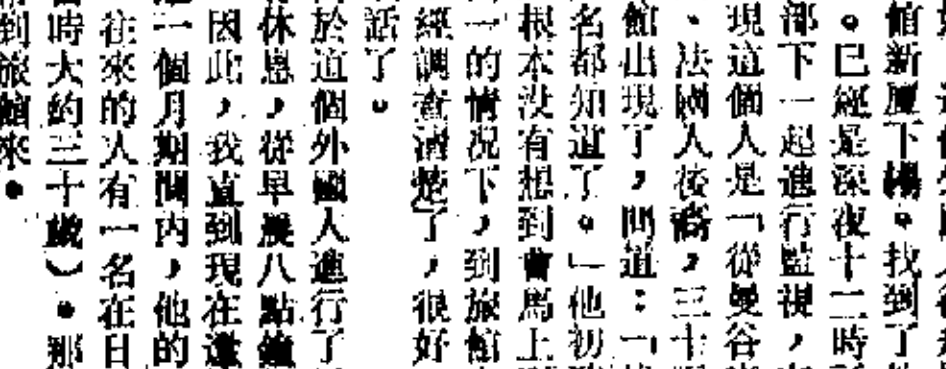 館新厦下榻。找到了
。已經是深夜十二時
部下一起進行監視，
現這個人是「從曼谷
、法國人後裔，三十
館出現了，問道：「
名都知道了。」他初
根本没有想到會馬上
一的情况下，到旅館
經調查清楚了，很好
話了。
於這個外國人進行了
休息，從早晨八點鐘
因此，我直到現在還
一個月期間内，他的
往來的人有一名在日
時大約三十歲）。那
到旅館來。